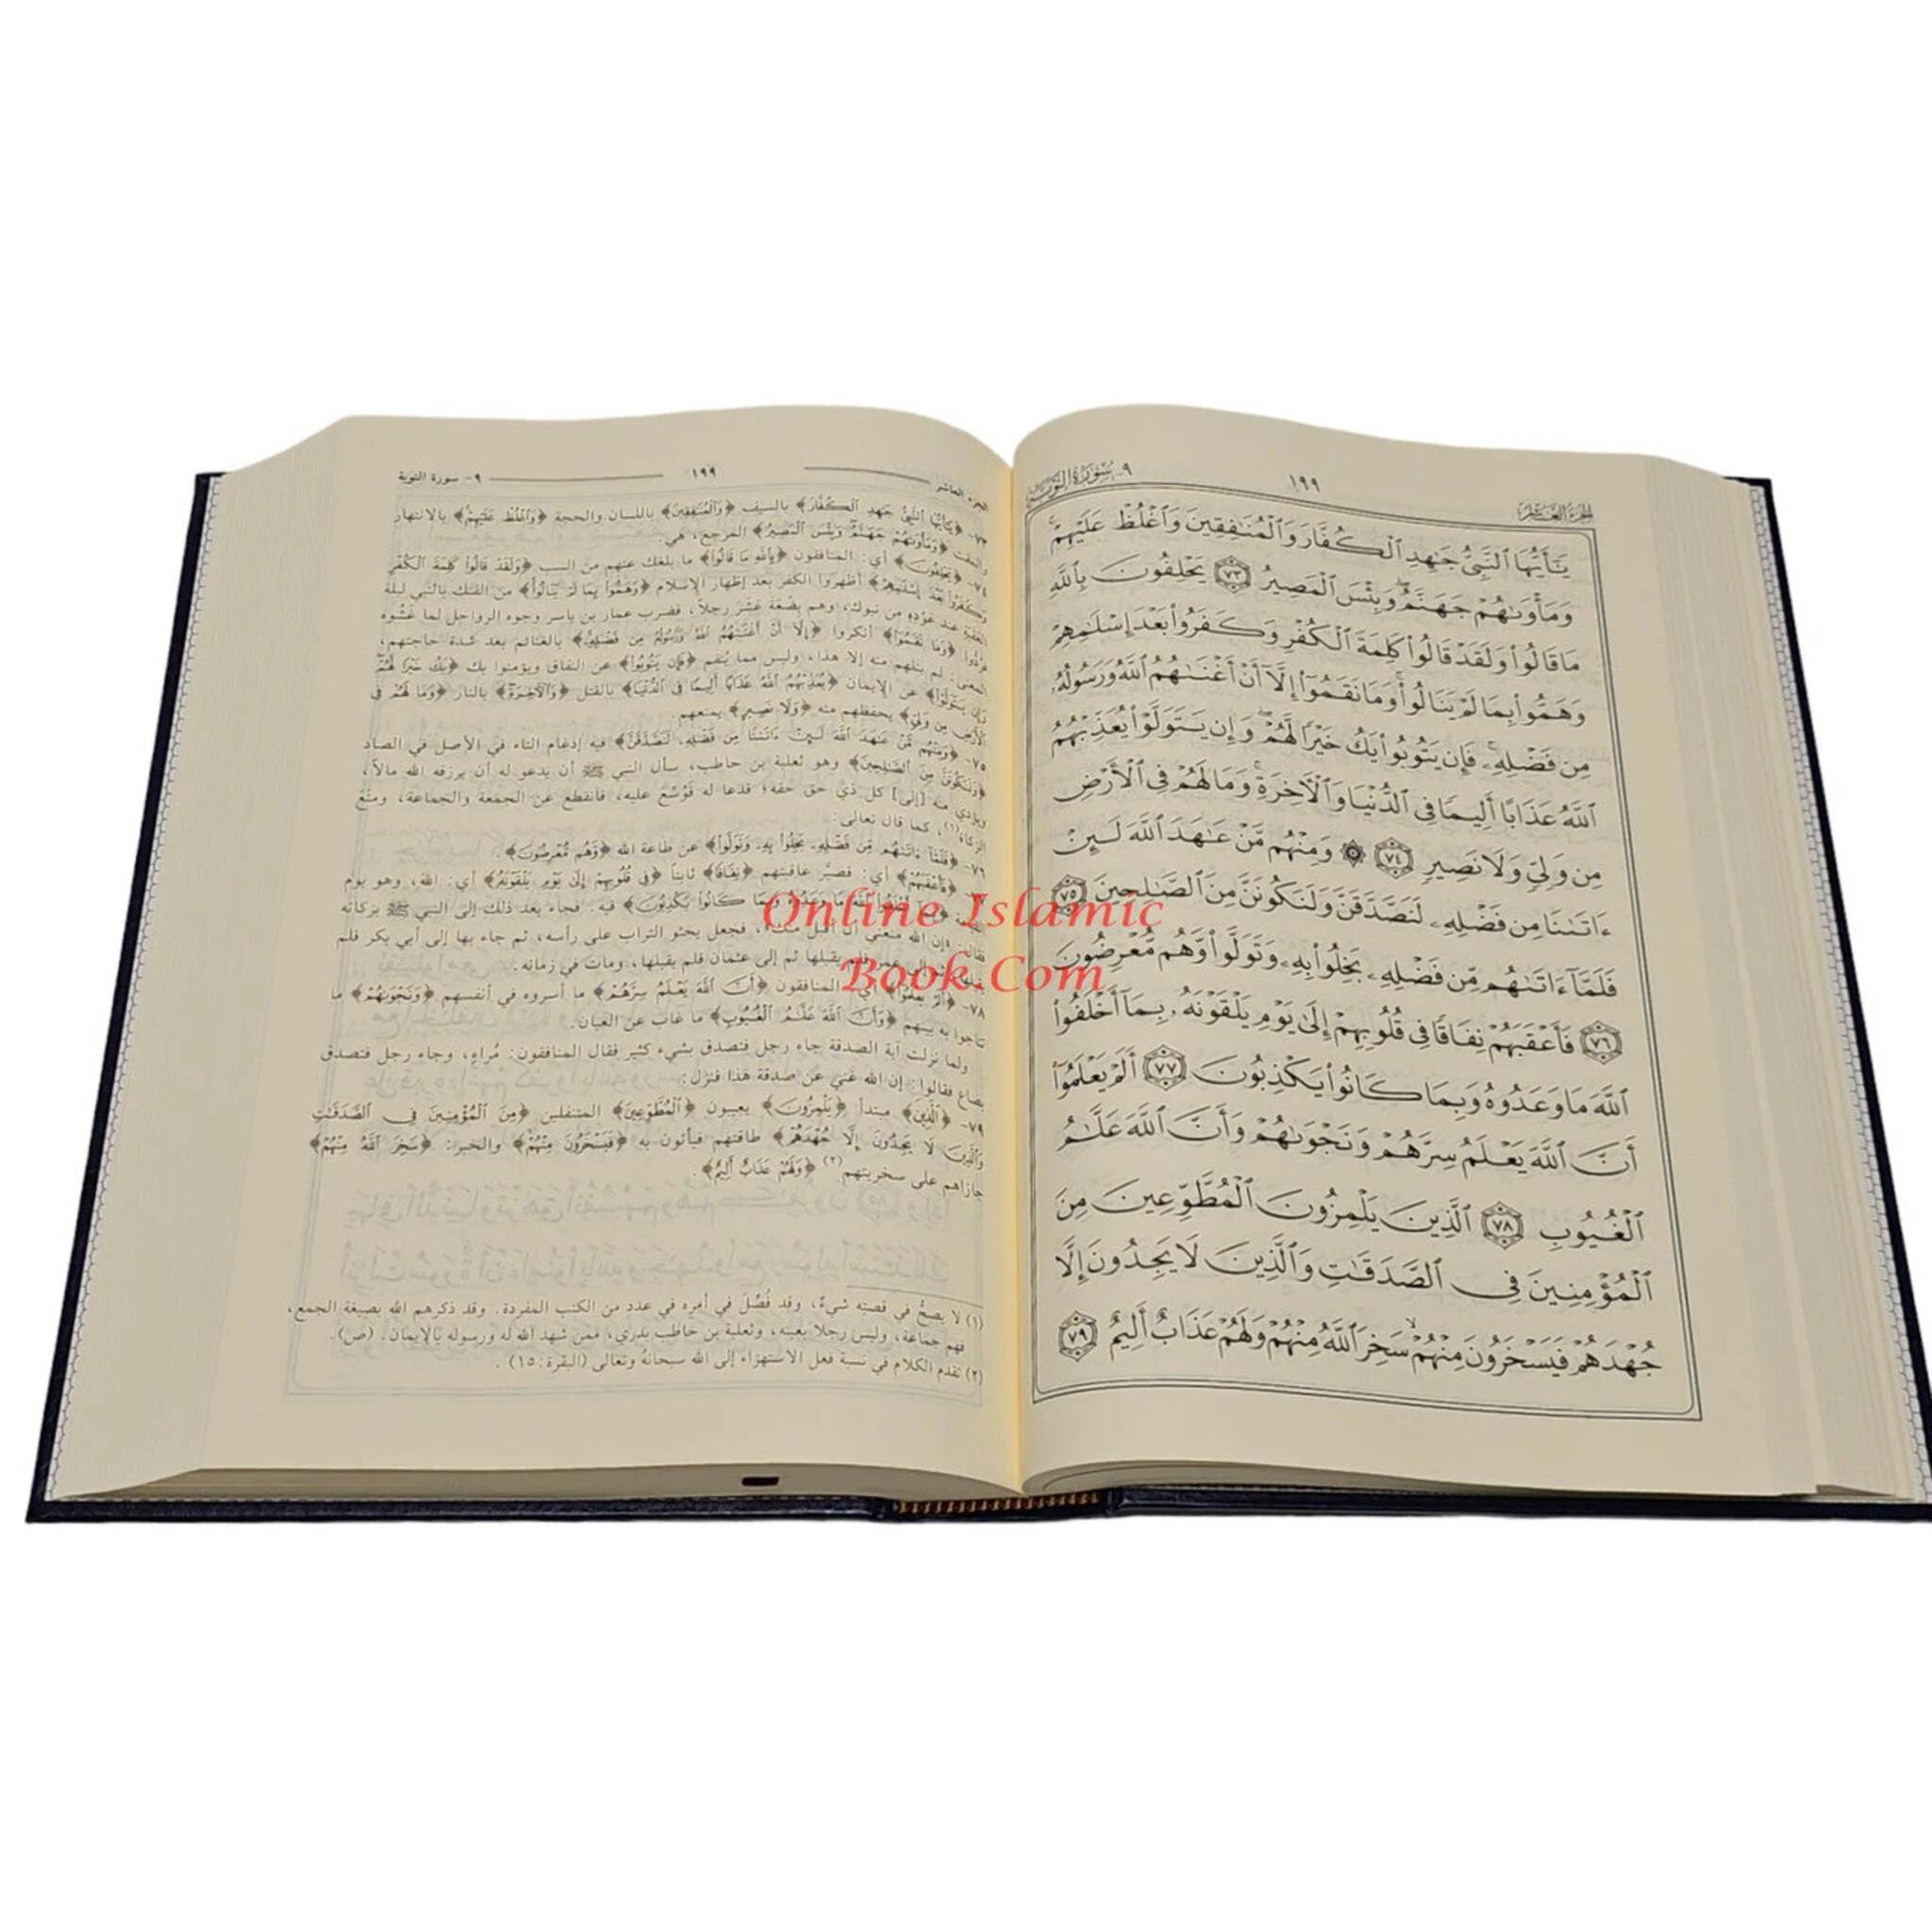 الجزء العاشر ١٩٩ ٩- سورة التوبة
يَٰٓأَيُّهَا ٱلنَّبِيُّ جَٰهِدِ ٱلۡكُفَّارَ وَٱلۡمُنَٰفِقِينَ وَٱغۡلُظۡ عَلَيۡهِمۡۚ
وَمَأۡوَىٰهُمۡ جَهَنَّمُۖ وَبِئۡسَ ٱلۡمَصِيرُ ٧٣ يَحۡلِفُونَ بِٱللَّهِ
مَا قَالُواْ وَلَقَدۡ قَالُواْ كَلِمَةَ ٱلۡكُفۡرِ وَكَفَرُواْ بَعۡدَ إِسۡلَٰمِهِمۡ
وَهَمُّواْ بِمَا لَمۡ يَنَالُواْۚ وَمَا نَقَمُوٓاْ إِلَّآ أَنۡ أَغۡنَىٰهُمُ ٱللَّهُ وَرَسُولُهُۥ
مِن فَضۡلِهِۦۚ فَإِن يَتُوبُواْ يَكُ خَيۡرٗا لَّهُمۡۖ وَإِن يَتَوَلَّوۡاْ يُعَذِّبۡهُمُ
ٱللَّهُ عَذَابًا أَلِيمٗا فِي ٱلدُّنۡيَا وَٱلۡأٓخِرَةِۚ وَمَا لَهُمۡ فِي ٱلۡأَرۡضِ
مِن وَلِيّٖ وَلَا نَصِيرٖ ٧٤ ۞ وَمِنۡهُم مَّنۡ عَٰهَدَ ٱللَّهَ لَئِنۡ
ءَاتَىٰنَا مِن فَضۡلِهِۦ لَنَصَّدَّقَنَّ وَلَنَكُونَنَّ مِنَ ٱلصَّٰلِحِينَ ٧٥
فَلَمَّآ ءَاتَىٰهُم مِّن فَضۡلِهِۦ بَخِلُواْ بِهِۦ وَتَوَلَّواْ وَّهُم مُّعۡرِضُونَ
٧٦ فَأَعۡقَبَهُمۡ نِفَاقٗا فِي قُلُوبِهِمۡ إِلَىٰ يَوۡمِ يَلۡقَوۡنَهُۥ بِمَآ أَخۡلَفُواْ
ٱللَّهَ مَا وَعَدُوهُ وَبِمَا كَانُواْ يَكۡذِبُونَ ٧٧ أَلَمۡ يَعۡلَمُوٓاْ
أَنَّ ٱللَّهَ يَعۡلَمُ سِرَّهُمۡ وَنَجۡوَىٰهُمۡ وَأَنَّ ٱللَّهَ عَلَّٰمُ
ٱلۡغُيُوبِ ٧٨ ٱلَّذِينَ يَلۡمِزُونَ ٱلۡمُطَّوِّعِينَ مِنَ
ٱلۡمُؤۡمِنِينَ فِي ٱلصَّدَقَٰتِ وَٱلَّذِينَ لَا يَجِدُونَ إِلَّا
جُهۡدَهُمۡ فَيَسۡخَرُونَ مِنۡهُمۡۙ سَخِرَ ٱللَّهُ مِنۡهُمۡ وَلَهُمۡ عَذَابٌ أَلِيمٌ ٧٩
الجزء العاشر ١٩٩ ٩- سورة التوبة
٧٣- ﴿يَٰٓأَيُّهَا ٱلنَّبِيُّ جَٰهِدِ ٱلۡكُفَّارَ﴾ بالسيف ﴿وَٱلۡمُنَٰفِقِينَ﴾ باللسان والحجة ﴿وَٱغۡلُظۡ عَلَيۡهِمۡ﴾ بالانتهار
والمقت ﴿وَمَأۡوَىٰهُمۡ جَهَنَّمُۖ وَبِئۡسَ ٱلۡمَصِيرُ﴾ المرجع، هي.
٧٤- ﴿يَحۡلِفُونَ﴾ أي: المنافقون ﴿بِٱللَّهِ مَا قَالُواْ﴾ ما بلغك عنهم من السب ﴿وَلَقَدۡ قَالُواْ كَلِمَةَ ٱلۡكُفۡرِ
وَكَفَرُواْ بَعۡدَ إِسۡلَٰمِهِمۡ﴾ أظهروا الكفر بعد إظهار الإسلام ﴿وَهَمُّواْ بِمَا لَمۡ يَنَالُواْ﴾ من الفتك بالنبي ليلة
العقبة عند عَوْدِهِ من تبوك، وهم بِضْعَةَ عَشَرَ رجلاً، فضرب عمار بن ياسر وجوه الرواحل لما غَشُوه
فرُدُّوا ﴿وَمَا نَقَمُوٓاْ﴾ أنكروا ﴿إِلَّآ أَنۡ أَغۡنَىٰهُمُ ٱللَّهُ وَرَسُولُهُۥ مِن فَضۡلِهِۦ﴾ بالغنائم بعد شدة حاجتهم،
المعنى: لم ينلهم منه إلا هذا، وليس مما يُنقم ﴿فَإِن يَتُوبُواْ﴾ عن النفاق ويؤمنوا بك ﴿يَكُ خَيۡرٗا لَّهُمۡۖ
وَإِن يَتَوَلَّوۡاْ﴾ عن الإيمان ﴿يُعَذِّبۡهُمُ ٱللَّهُ عَذَابًا أَلِيمٗا فِي ٱلدُّنۡيَا﴾ بالقتل ﴿وَٱلۡأٓخِرَةِ﴾ بالنار ﴿وَمَا لَهُمۡ فِي
ٱلۡأَرۡضِ مِن وَلِيّٖ﴾ يحفظهم منه ﴿وَلَا نَصِيرٖ﴾ يمنعهم.
٧٥- ﴿وَمِنۡهُم مَّنۡ عَٰهَدَ ٱللَّهَ لَئِنۡ ءَاتَىٰنَا مِن فَضۡلِهِۦ لَنَصَّدَّقَنَّ﴾ فيه إدغام التاء في الأصل في الصاد
﴿وَلَنَكُونَنَّ مِنَ ٱلصَّٰلِحِينَ﴾ وهو ثعلبة بن حاطب، سأل النبي ﷺ أن يدعو له أن يرزقه الله مالاً،
ويؤدي منه [إلى] كل ذي حق حقه؛ فدعا له فَوُسِّعَ عليه، فانقطع عن الجمعة والجماعة، ومنَعَ
الزكاة(١)، كما قال تعالى:
٧٦- ﴿فَلَمَّآ ءَاتَىٰهُم مِّن فَضۡلِهِۦ بَخِلُواْ بِهِۦ وَتَوَلَّواْ﴾ عن طاعة الله ﴿وَّهُم مُّعۡرِضُونَ﴾.
﴿فَأَعۡقَبَهُمۡ﴾ أي: فصيَّر عاقبتهم ﴿نِفَاقٗا﴾ ثابتاً ﴿فِي قُلُوبِهِمۡ إِلَىٰ يَوۡمِ يَلۡقَوۡنَهُۥ﴾ أي: الله، وهو يوم
﴿بِمَآ أَخۡلَفُواْ ٱللَّهَ مَا وَعَدُوهُ وَبِمَا كَانُواْ يَكۡذِبُونَ﴾ فيه. فجاء بعد ذلك إلى النبي ﷺ بزكاته
فقال: «إن الله منعني أن أقبل منك»، فجعل يحثو التراب على رأسه، ثم جاء بها إلى أبي بكر فلم
يقبلها، ثم إلى عمر فلم يقبلها ثم إلى عثمان فلم يقبلها، ومات في زمانه.
٧٨- ﴿أَلَمۡ يَعۡلَمُوٓاْ﴾ أي: المنافقون ﴿أَنَّ ٱللَّهَ يَعۡلَمُ سِرَّهُمۡ﴾ ما أسروه في أنفسهم ﴿وَنَجۡوَىٰهُمۡ﴾ ما
تناجوا به بينهم ﴿وَأَنَّ ٱللَّهَ عَلَّٰمُ ٱلۡغُيُوبِ﴾ ما غاب عن العيان.
ولما نزلت آية الصدقة جاء رجل فتصدق بشيء كثير فقال المنافقون: مُراءٍ، وجاء رجل فتصدق
بصاع فقالوا: إن الله غني عن صدقة هذا فنزل:
٧٩- ﴿ٱلَّذِينَ﴾ مبتدأ ﴿يَلۡمِزُونَ﴾ يعيبون ﴿ٱلۡمُطَّوِّعِينَ﴾ المتنفلين ﴿مِنَ ٱلۡمُؤۡمِنِينَ فِي ٱلصَّدَقَٰتِ
وَٱلَّذِينَ لَا يَجِدُونَ إِلَّا جُهۡدَهُمۡ﴾ طاقتهم فيأتون به ﴿فَيَسۡخَرُونَ مِنۡهُمۡ﴾ والخبر: ﴿سَخِرَ ٱللَّهُ مِنۡهُمۡ﴾
جازاهم على سخريتهم(٢) ﴿وَلَهُمۡ عَذَابٌ أَلِيمٌ﴾.
(١) لا يصحُّ في قصته شيءٌ، وقد فُصِّلَ في أمره في عدد من الكتب المفردة. وقد ذكرهم الله بصيغة الجمع،
فهم جماعة، وليس رجلاً بعينه، وثعلبة بن حاطب بدري، ممن شهد الله له ورسوله بالإيمان. (ص).
(٢) تقدم الكلام في نسبة فعل الاستهزاء إلى الله سبحانهُ وتعالى (البقرة: ١٥).
Online Islamic
Book.Com